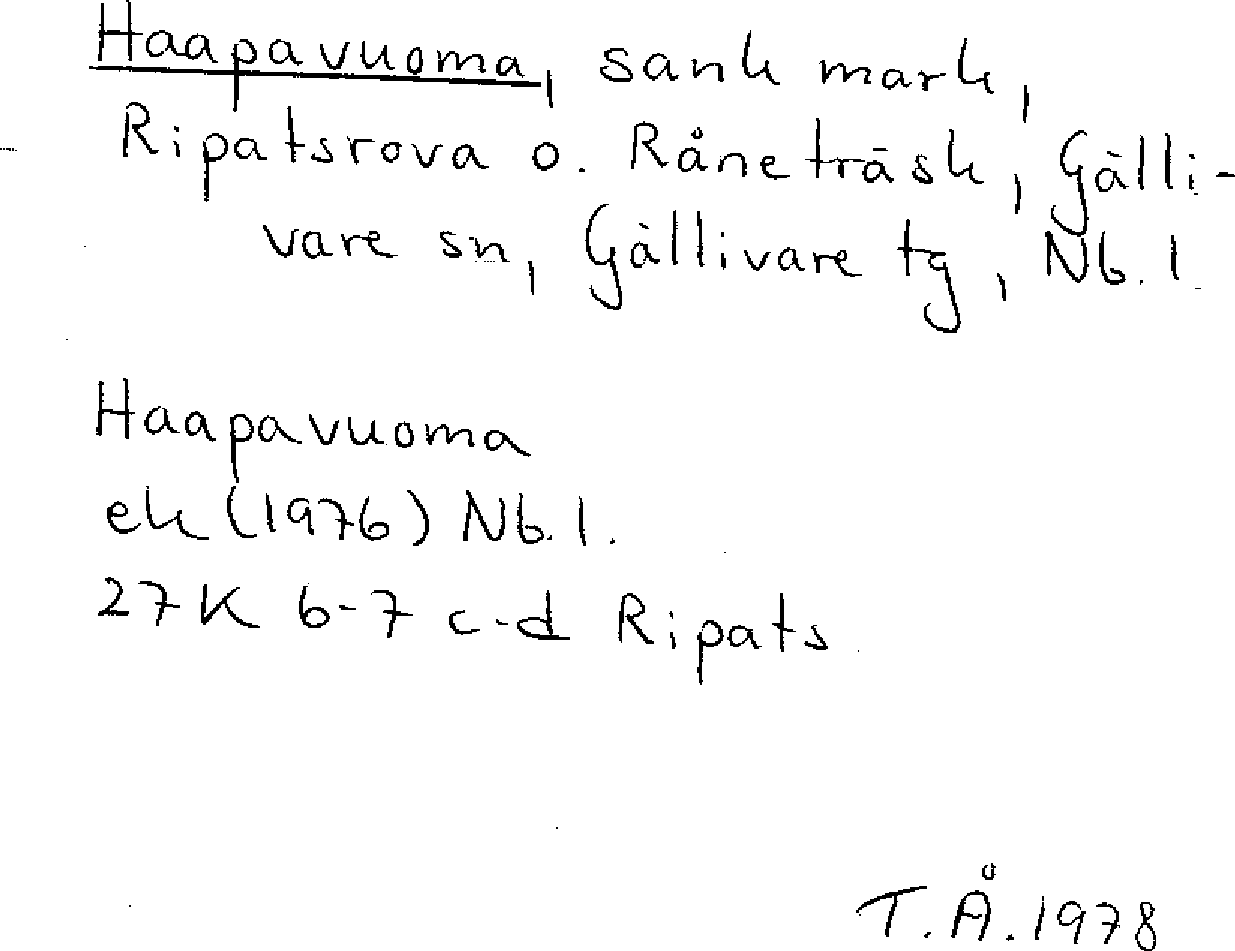 Haapavuoma, sank mark,
Ripatsrova o. Råneträsk, Gälli-
vare sn, Gällivare tg, Nb. l.
Haapavuoma
ek (1976) Nb. l.
27K 6-7 c-d Ripats
T. Å. 1978